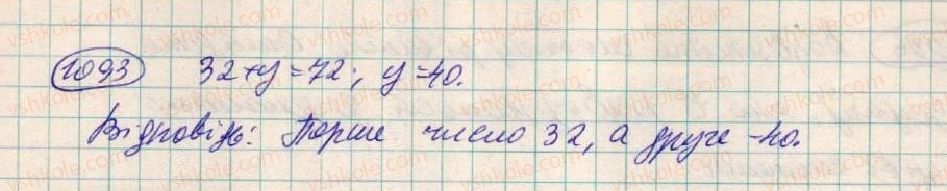 1093 32+y=72; y=40.
Відповідь: Перше число 32, а друге -40.